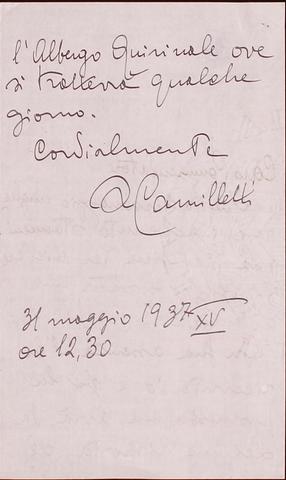 l'Albergo Quirinale ove
si tratterrà qualche
giorno.
Cordialmente
Camilletti
31 maggio 1937 XV
ore 12,30